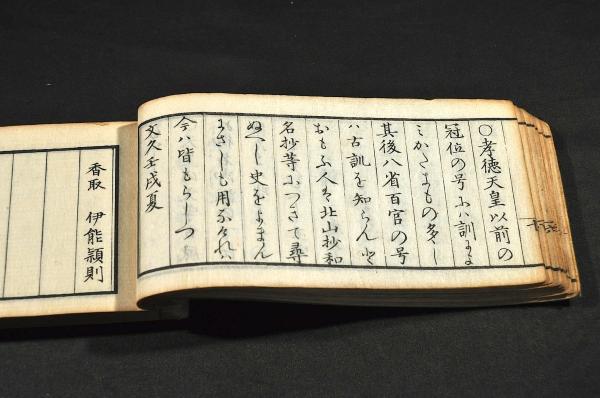 〇孝德天皇以前の
冠位の号にハ訓によ
みかたきもの多し
其後八省百官の号
ハ古訓を知らんと
おもふ人は北山抄和
名抄等につきて尋
ぬへし史をよまん
にさしも用なけれハ
今ハ皆もらしつ
文久壬戌夏
香取 伊能穎則